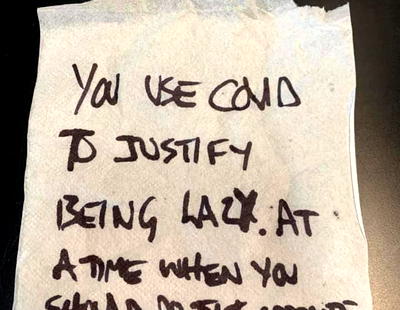 YOU USE COVID
TO JUSTIFY
BEING LAZY. AT
A TIME WHEN YOU
SHOULD